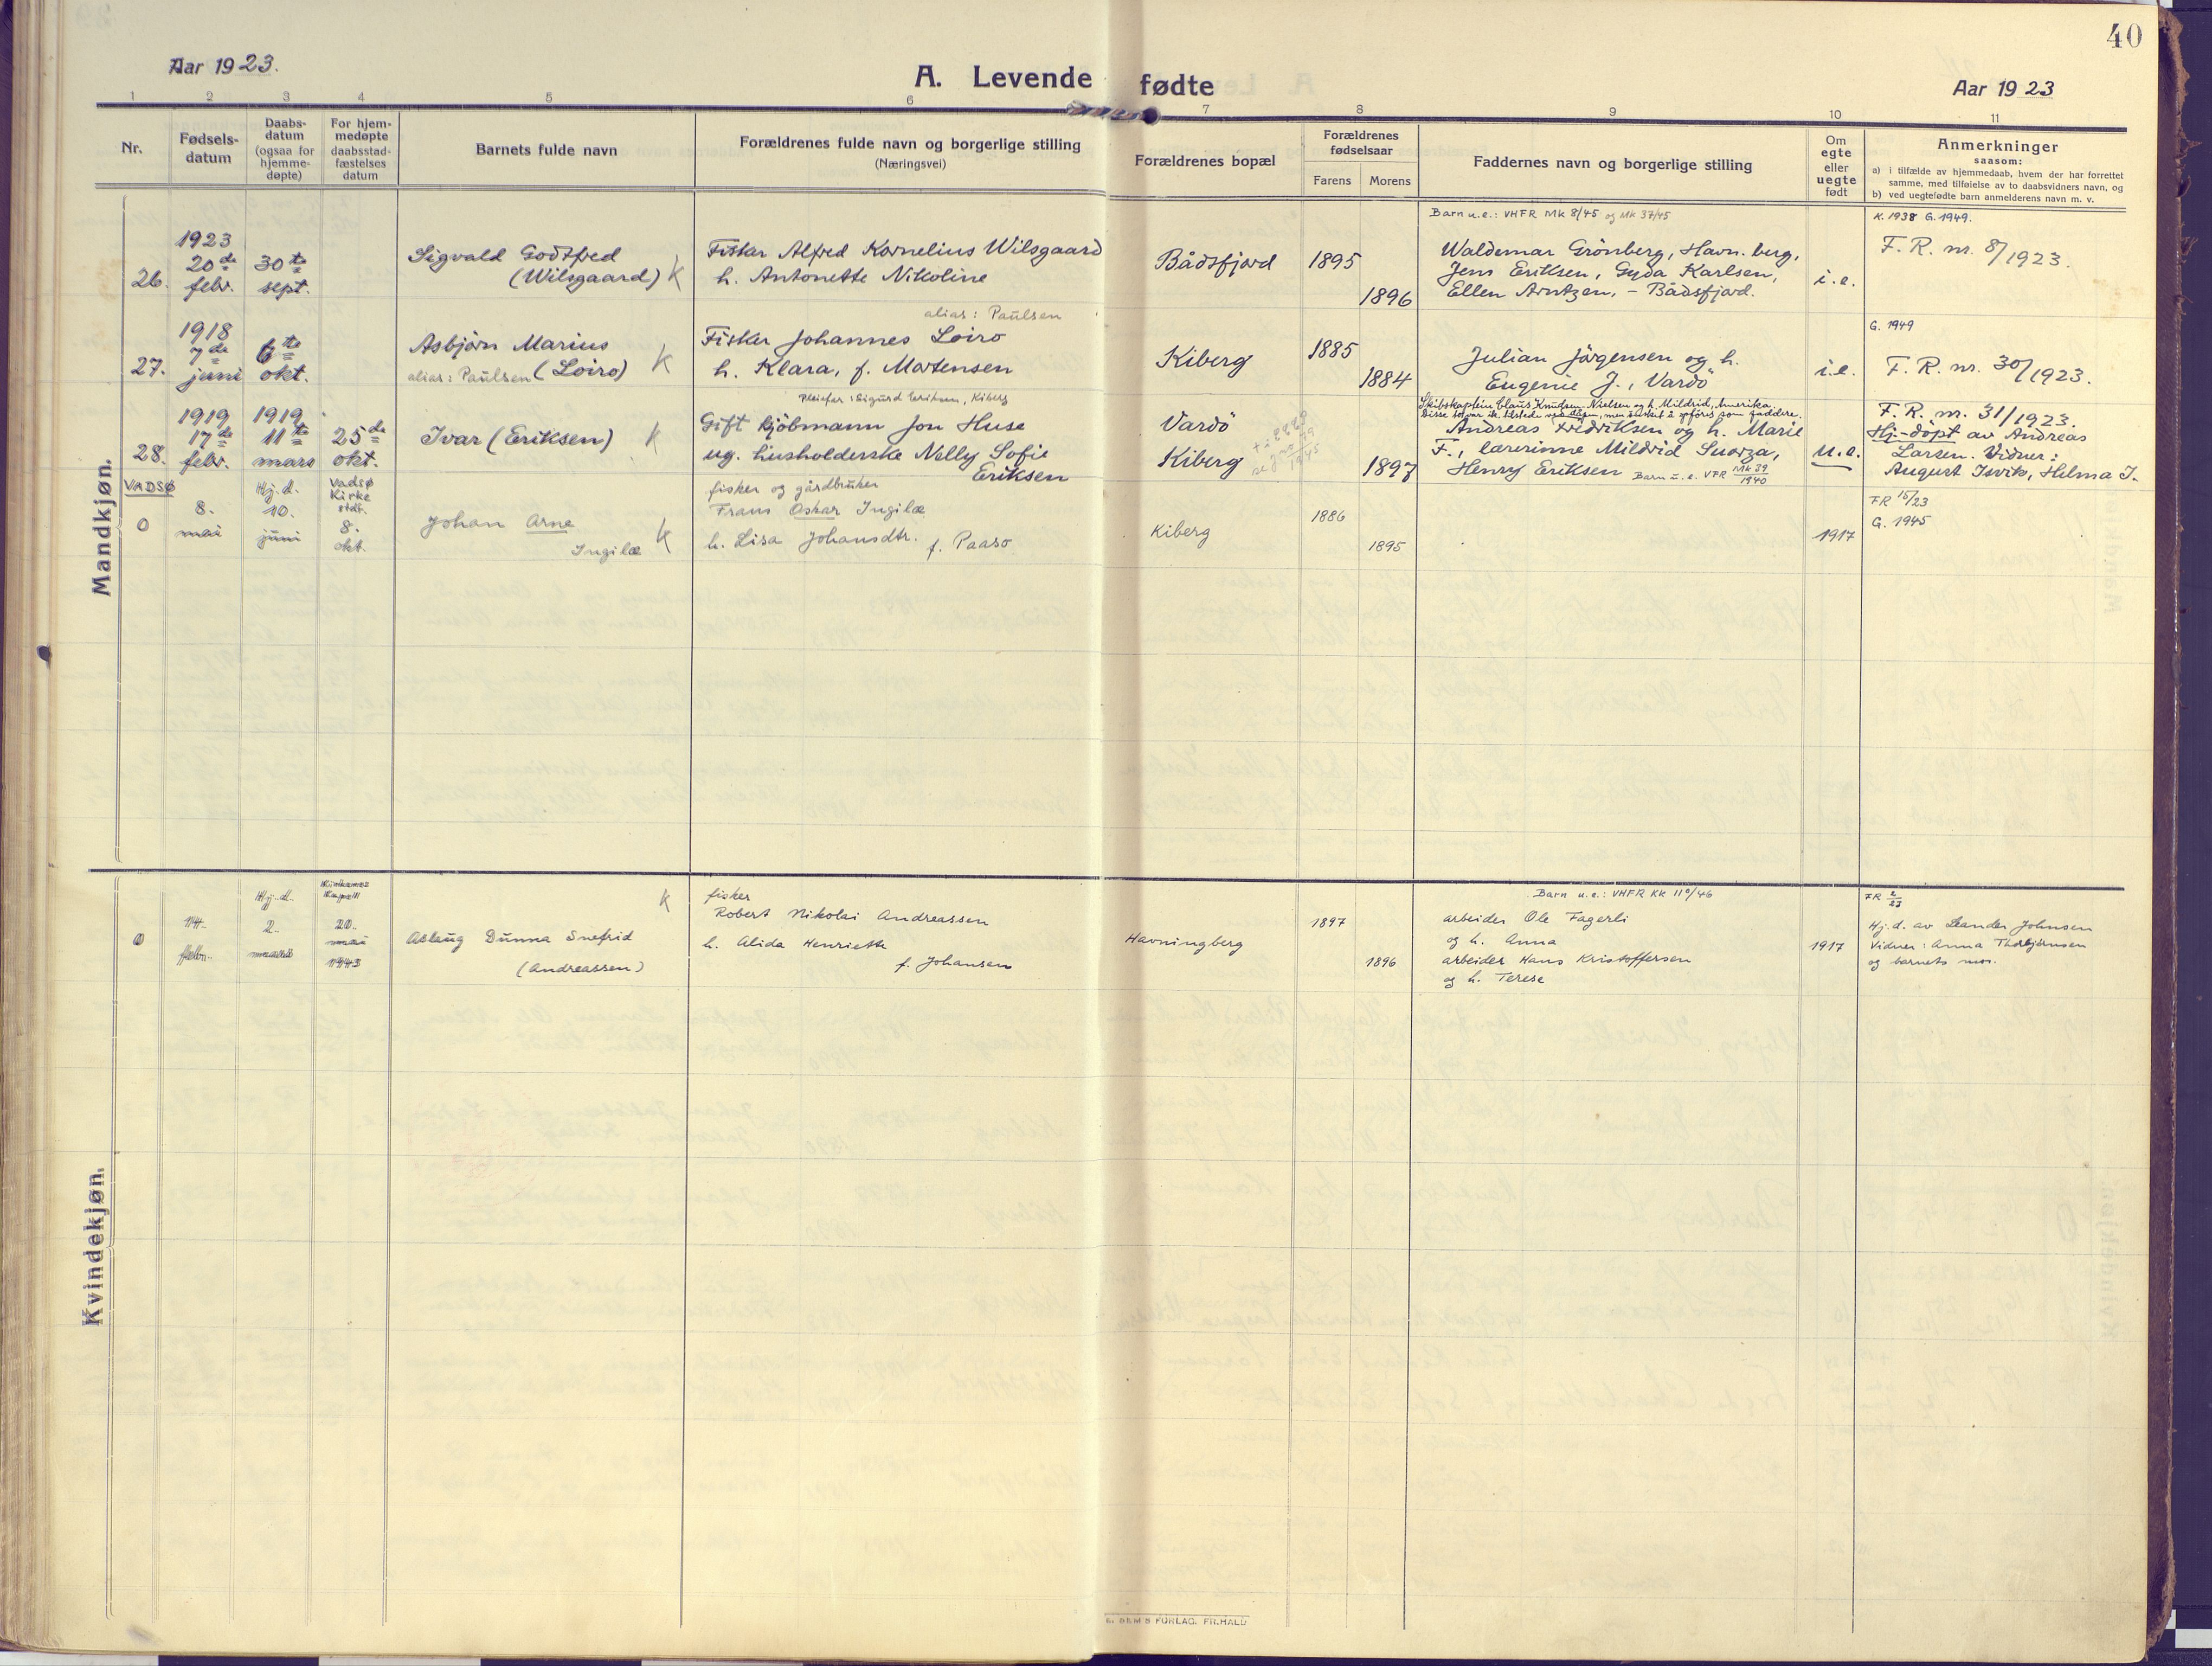 40
Aar 1923.
A. Levende fødte
Aar 1923
1 2 3 4 5 6 7 8 9 10 11
Nr.
Fødsels-
datum
Daabs-
datum
(ogsaa for
hjemme-
døpte)
For hjem-
medøpte
daabsstad-
fæstelses
datum
Barnets fulde navn
Forældrenes fulde navn og borgerlige stilling
(Næringsvei)
Forældrenes bopæl
Forældrenes
fødselsaar
Farens Morens
Faddernes navn og borgerlige stilling
Om
egte
eller
uegte
født
Anmerkninger
saasom:
a) i tilfælde av hjemmedaab, hvem der har forrettet
samme, med tilføielse av to daabsvidners navn, og
b) ved uegtefødte barn anmelderens navn m. v.
Mandkjøn.
26.
1923
20de
febr.
30te
sept.
Sigvald Godtfred
(Wilsgaard) K
Fisker Alfred Kornelius Wilsgaard
h. Antonette Nikoline
Bådsfjord
1895
1896
Barn u.e.: VHFR MK 8/45 og MK 37/45
Waldemar Grönberg, Havn. berg,
Jens Eriksen, Gyda Karlsen,
Ellen Arntzen, - Bådsfjord.
i.e.
K. 1938 G. 1949.
F. R. nr. 8/1923.
27.
1918
7de
juni
6te
okt.
Asbjörn Marius
alias: Paulsen (Loiro) K
alias: Paulsen
Fisker Johannes Loiro
h. Klara, f. Mortensen
Kiberg
1885
1884
Julian Jörgensen og h.
Eugenie J., Vardö
i.e.
G. 1949
F. R. nr. 30/1923.
28.
1919
17de
febr.
1919
11te
mars
25de
okt.
Ivar (Eriksen) K
Pleiefar: Sigurd Eriksen, Kiberg
Gift kjöbmann Jon Huse
ug. husholderske Nelly Sofie
Eriksen
Vardö
Kiberg
1897
Skibskaptein Claus Knudsen-Nielsen og h. Mildrid, Amerika.
Andreas Fredriksen og h. Marie
F., lærerinne Mildrid
Henry Eriksen Barn u. e. VFR MK 39/1940
u.e.
F. R. nr. 31/1923.
Hj-döpt av Andreas
Larsen. Vidner:
August Isvik, Helma I.
VADSØ
0
8.
mai
Hj.d.
10.
juni
Vadsø
Kirke
stdf.
8.
okt.
Johan Arne
Ingilæ K
fisker og gårdbruker
Frans Oskar Ingilæ
h. Lisa Johansdtr. f. Paaso
Kiberg
1886
1895
1917
FR 15/23
G. 1945
Kvindekjøn.
0
14.
febr.
Hj.d.
2.
mars
20.
mai
1943
Aslaug Dunna Snefrid
(Andreassen)
K
fisker
Robert Nikolai Andreassen
h. Alida Henriette
f. Johansen
Havningberg
1897
1896
Barn u.e.: VHFR KK 110/46
arbeider Ole Fagerli
og h. Anna
arbeider Hans Kristoffersen
og h. Terese
1917
FR 2/23
Hj.d. av Leander Johnsen
Vidner: Anna Thorbjørnsen
og barnets mor.
E. SEM'S FORLAG. FR.HALD